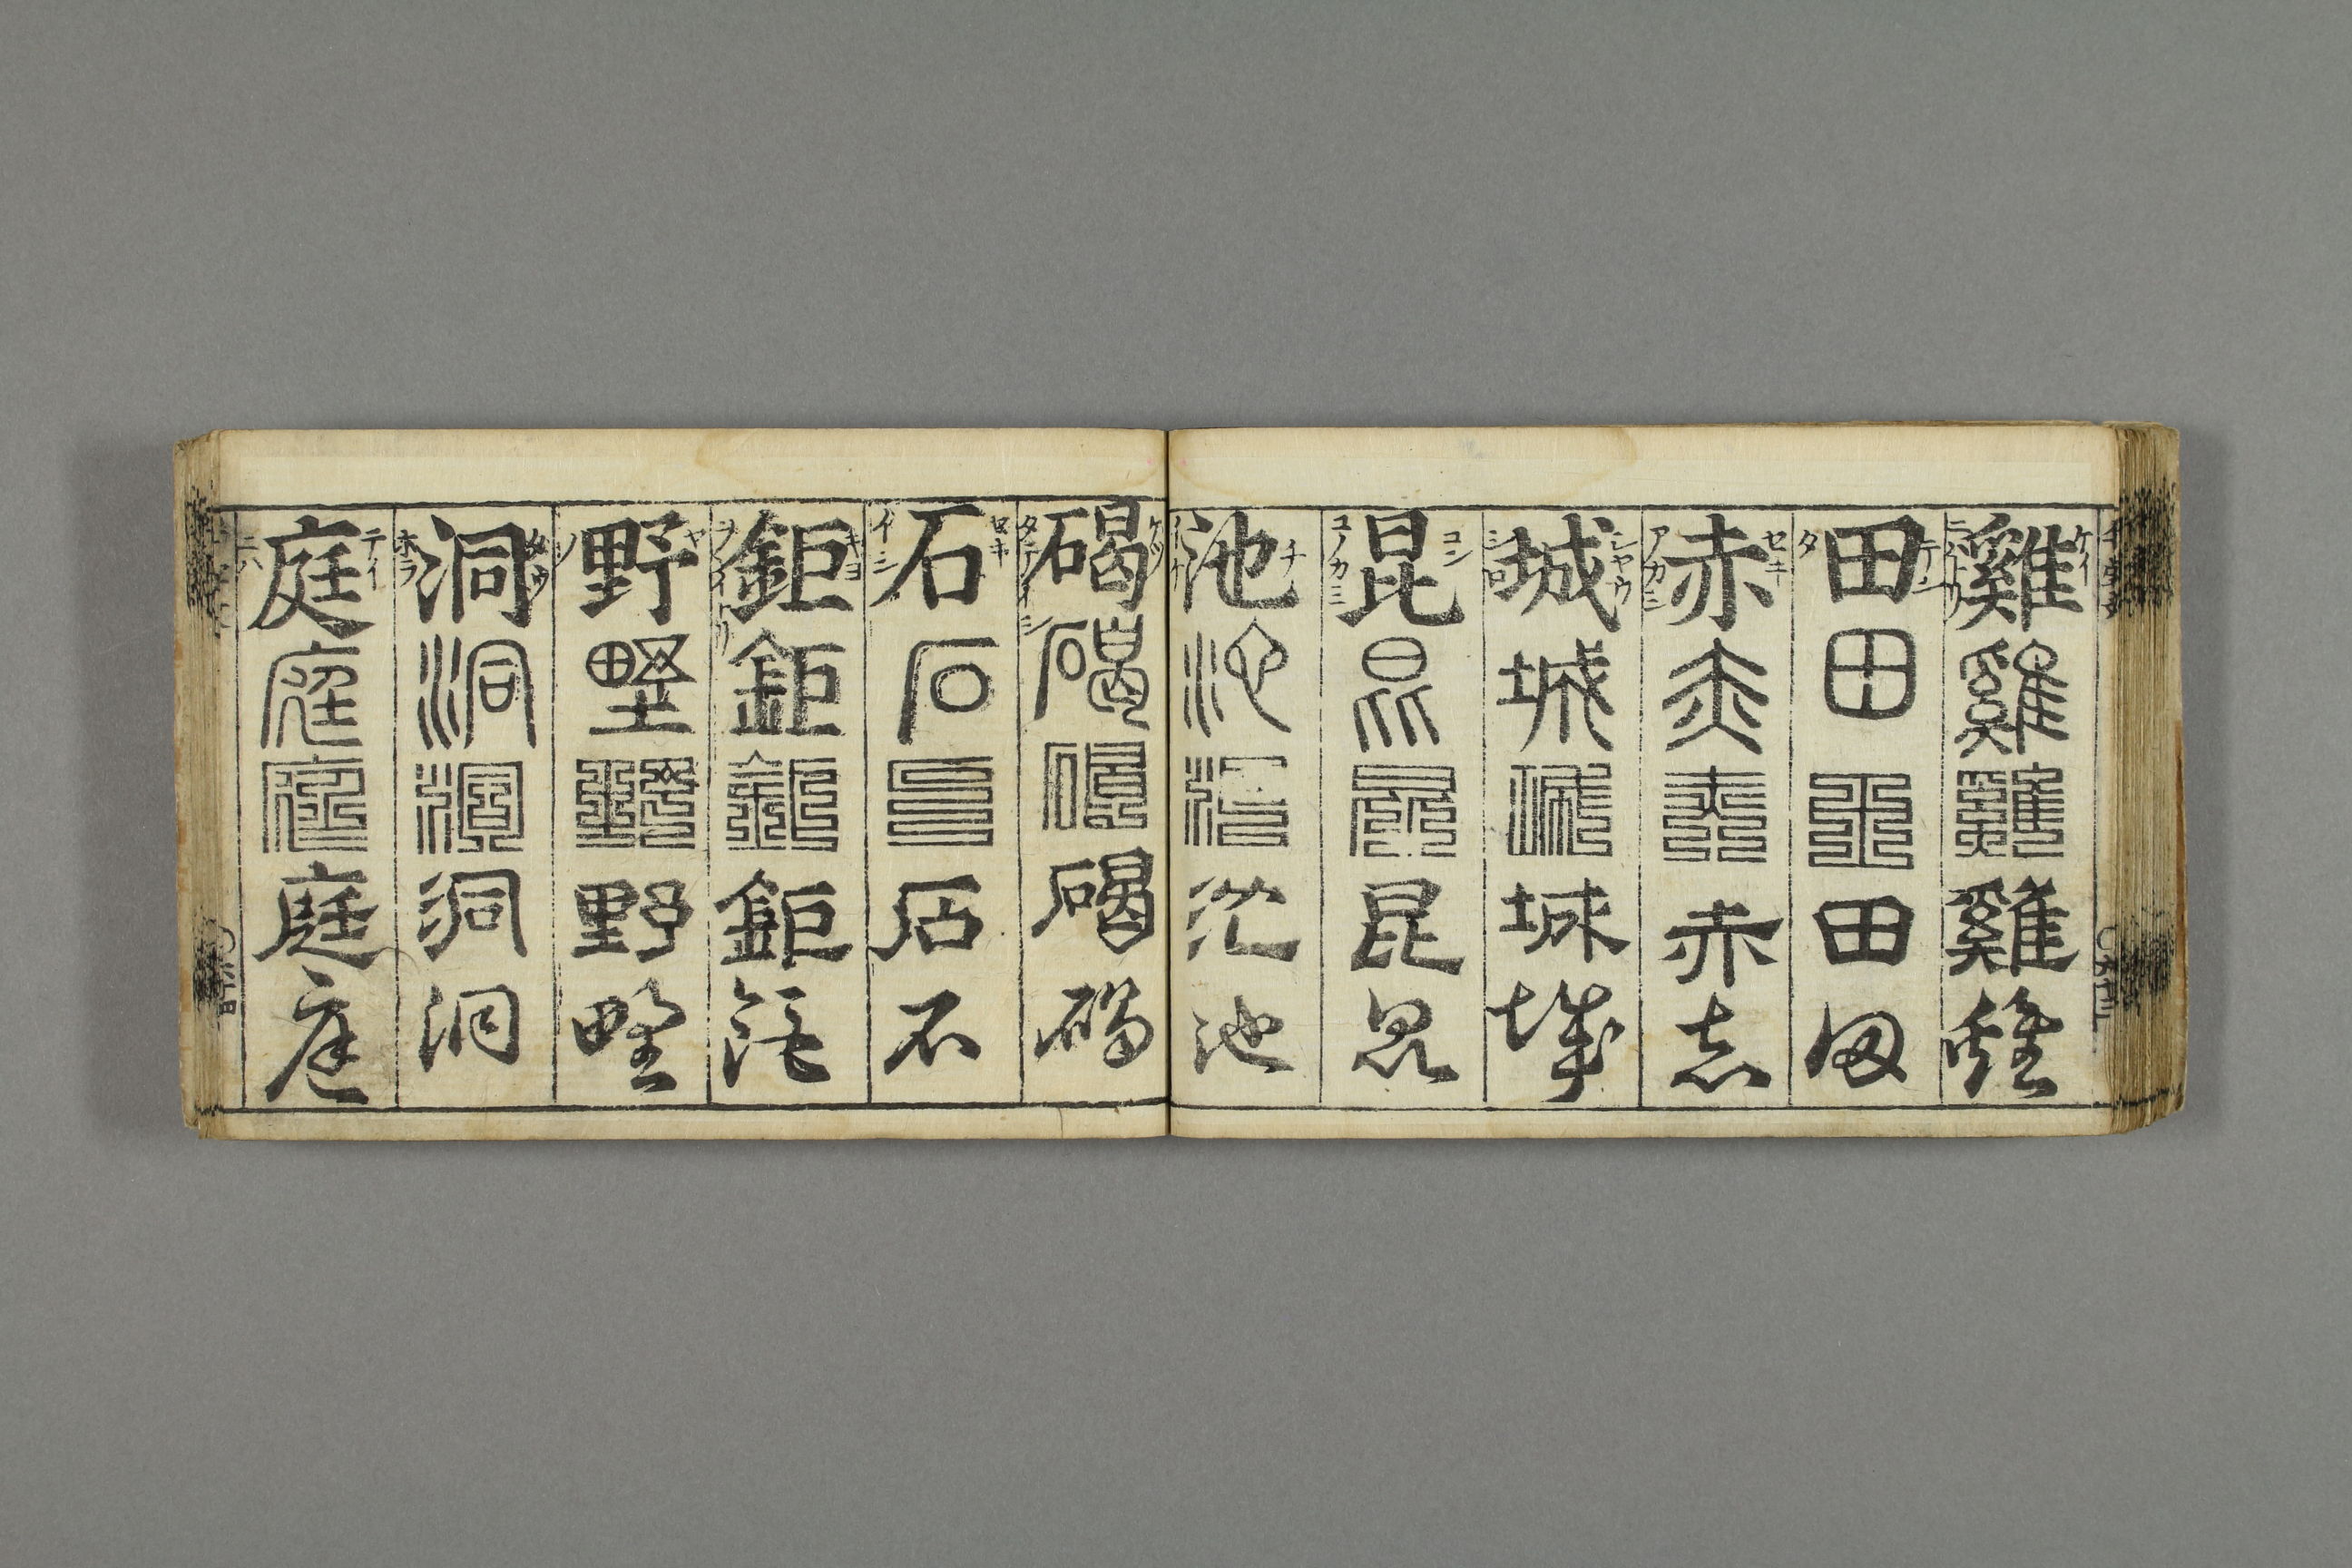 雞雞雞雞雞
ケイ
ニハトリ
田田田田田
テン
タ
赤赤赤赤赤
セキ
アカシ
城城城城城
シヤウ
シロ
昆昆昆昆昆
コン
コノカミ
池池池池池
チ
イケ
碣碣碣碣碣
ケツ
タテイシ
石石石石石
セキ
イシ
鉅鉅鉅鉅鉅
キヨ
野野野野野
ヤ
ノ
洞洞洞洞洞
ホラ
庭庭庭庭庭
テイ
ニハ